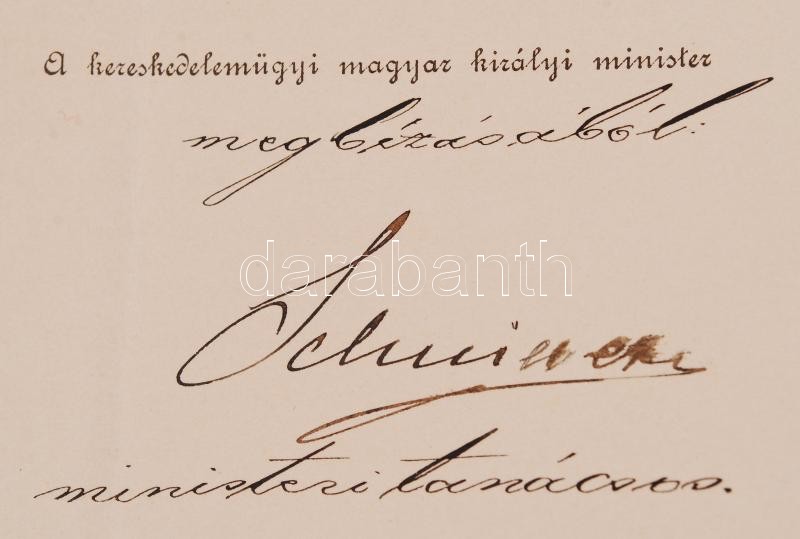 A kereskedelemügyi magyar királyi minister
megbízásából:
darabanth
ministeri tanácsos.